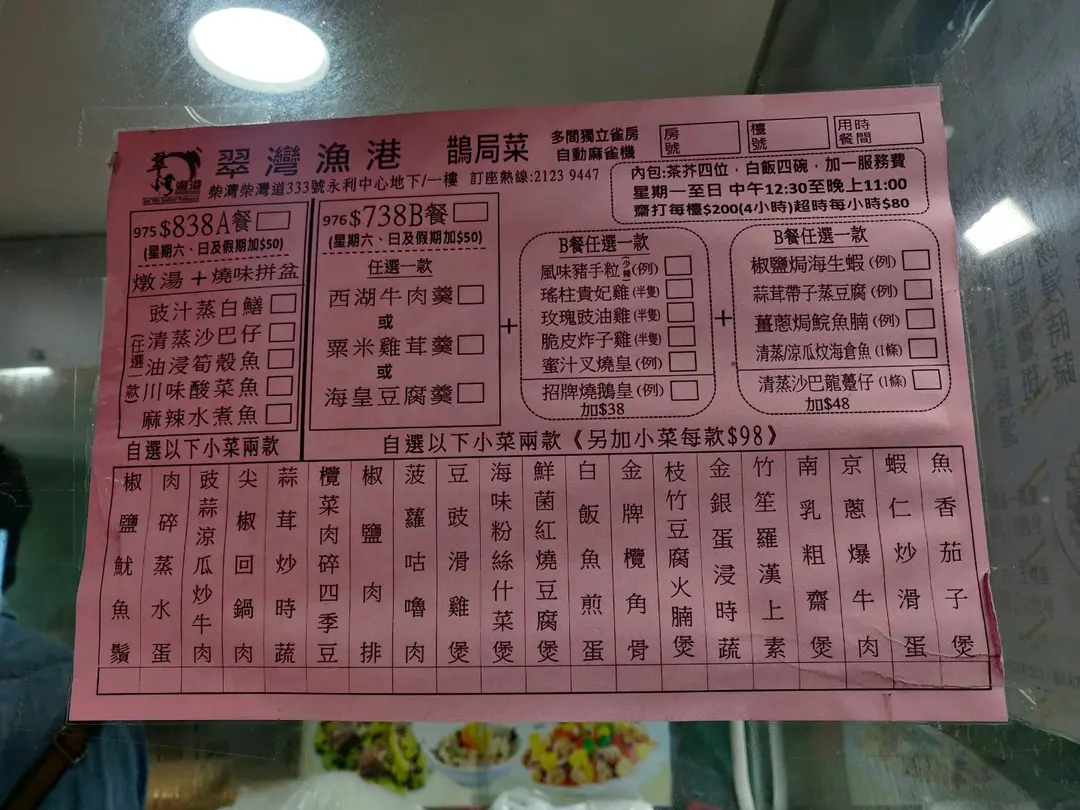 翠灣漁港 鵲局菜
多間獨立雀房
自動麻雀機
房號
檯號
用餐時間
柴灣柴灣道333號永利中心地下/一樓 訂座熱線:2123 9447
內包:茶芥四位，白飯四碗，加一服務費
星期一至日 中午12:30至晚上11:00
齋打每檯$200(4小時)超時每小時$80
975 $838A餐
(星期六、日及假期加$50)
燉湯＋燒味拼盆
(任選一款)
豉汁蒸白鱔
清蒸沙巴仔
油浸筍殼魚
川味酸菜魚
麻辣水煮魚
自選以下小菜兩款
976 $738B餐
(星期六、日及假期加$50)
任選一款
西湖牛肉羹
或
粟米雞茸羹
或
海皇豆腐羹
+
B餐任選一款
風味豬手粒(少辣)(例)
瑤柱貴妃雞(半隻)
玫瑰豉油雞(半隻)
脆皮炸子雞(半隻)
蜜汁叉燒皇(例)
招牌燒鵝皇(例)
加$38
+
B餐任選一款
椒鹽焗海生蝦(例)
蒜茸帶子蒸豆腐(例)
薑蔥焗鯇魚腩(例)
清蒸/涼瓜炆海倉魚(1條)
清蒸沙巴龍躉仔(1條)
加$48
自選以下小菜兩款《另加小菜每款$98》
椒鹽魷魚鬚
肉碎蒸水蛋
豉蒜涼瓜炒牛肉
尖椒回鍋肉
蒜茸炒時蔬
欖菜肉碎四季豆
椒鹽肉排
菠蘿咕嚕肉
豆豉滑雞煲
海味粉絲什菜煲
鮮菌紅燒豆腐煲
白飯魚煎蛋
金牌欖角骨
枝竹豆腐火腩煲
金銀蛋浸時蔬
竹笙羅漢上素
南乳粗齋煲
京蔥爆牛肉
蝦仁炒滑蛋
魚香茄子煲